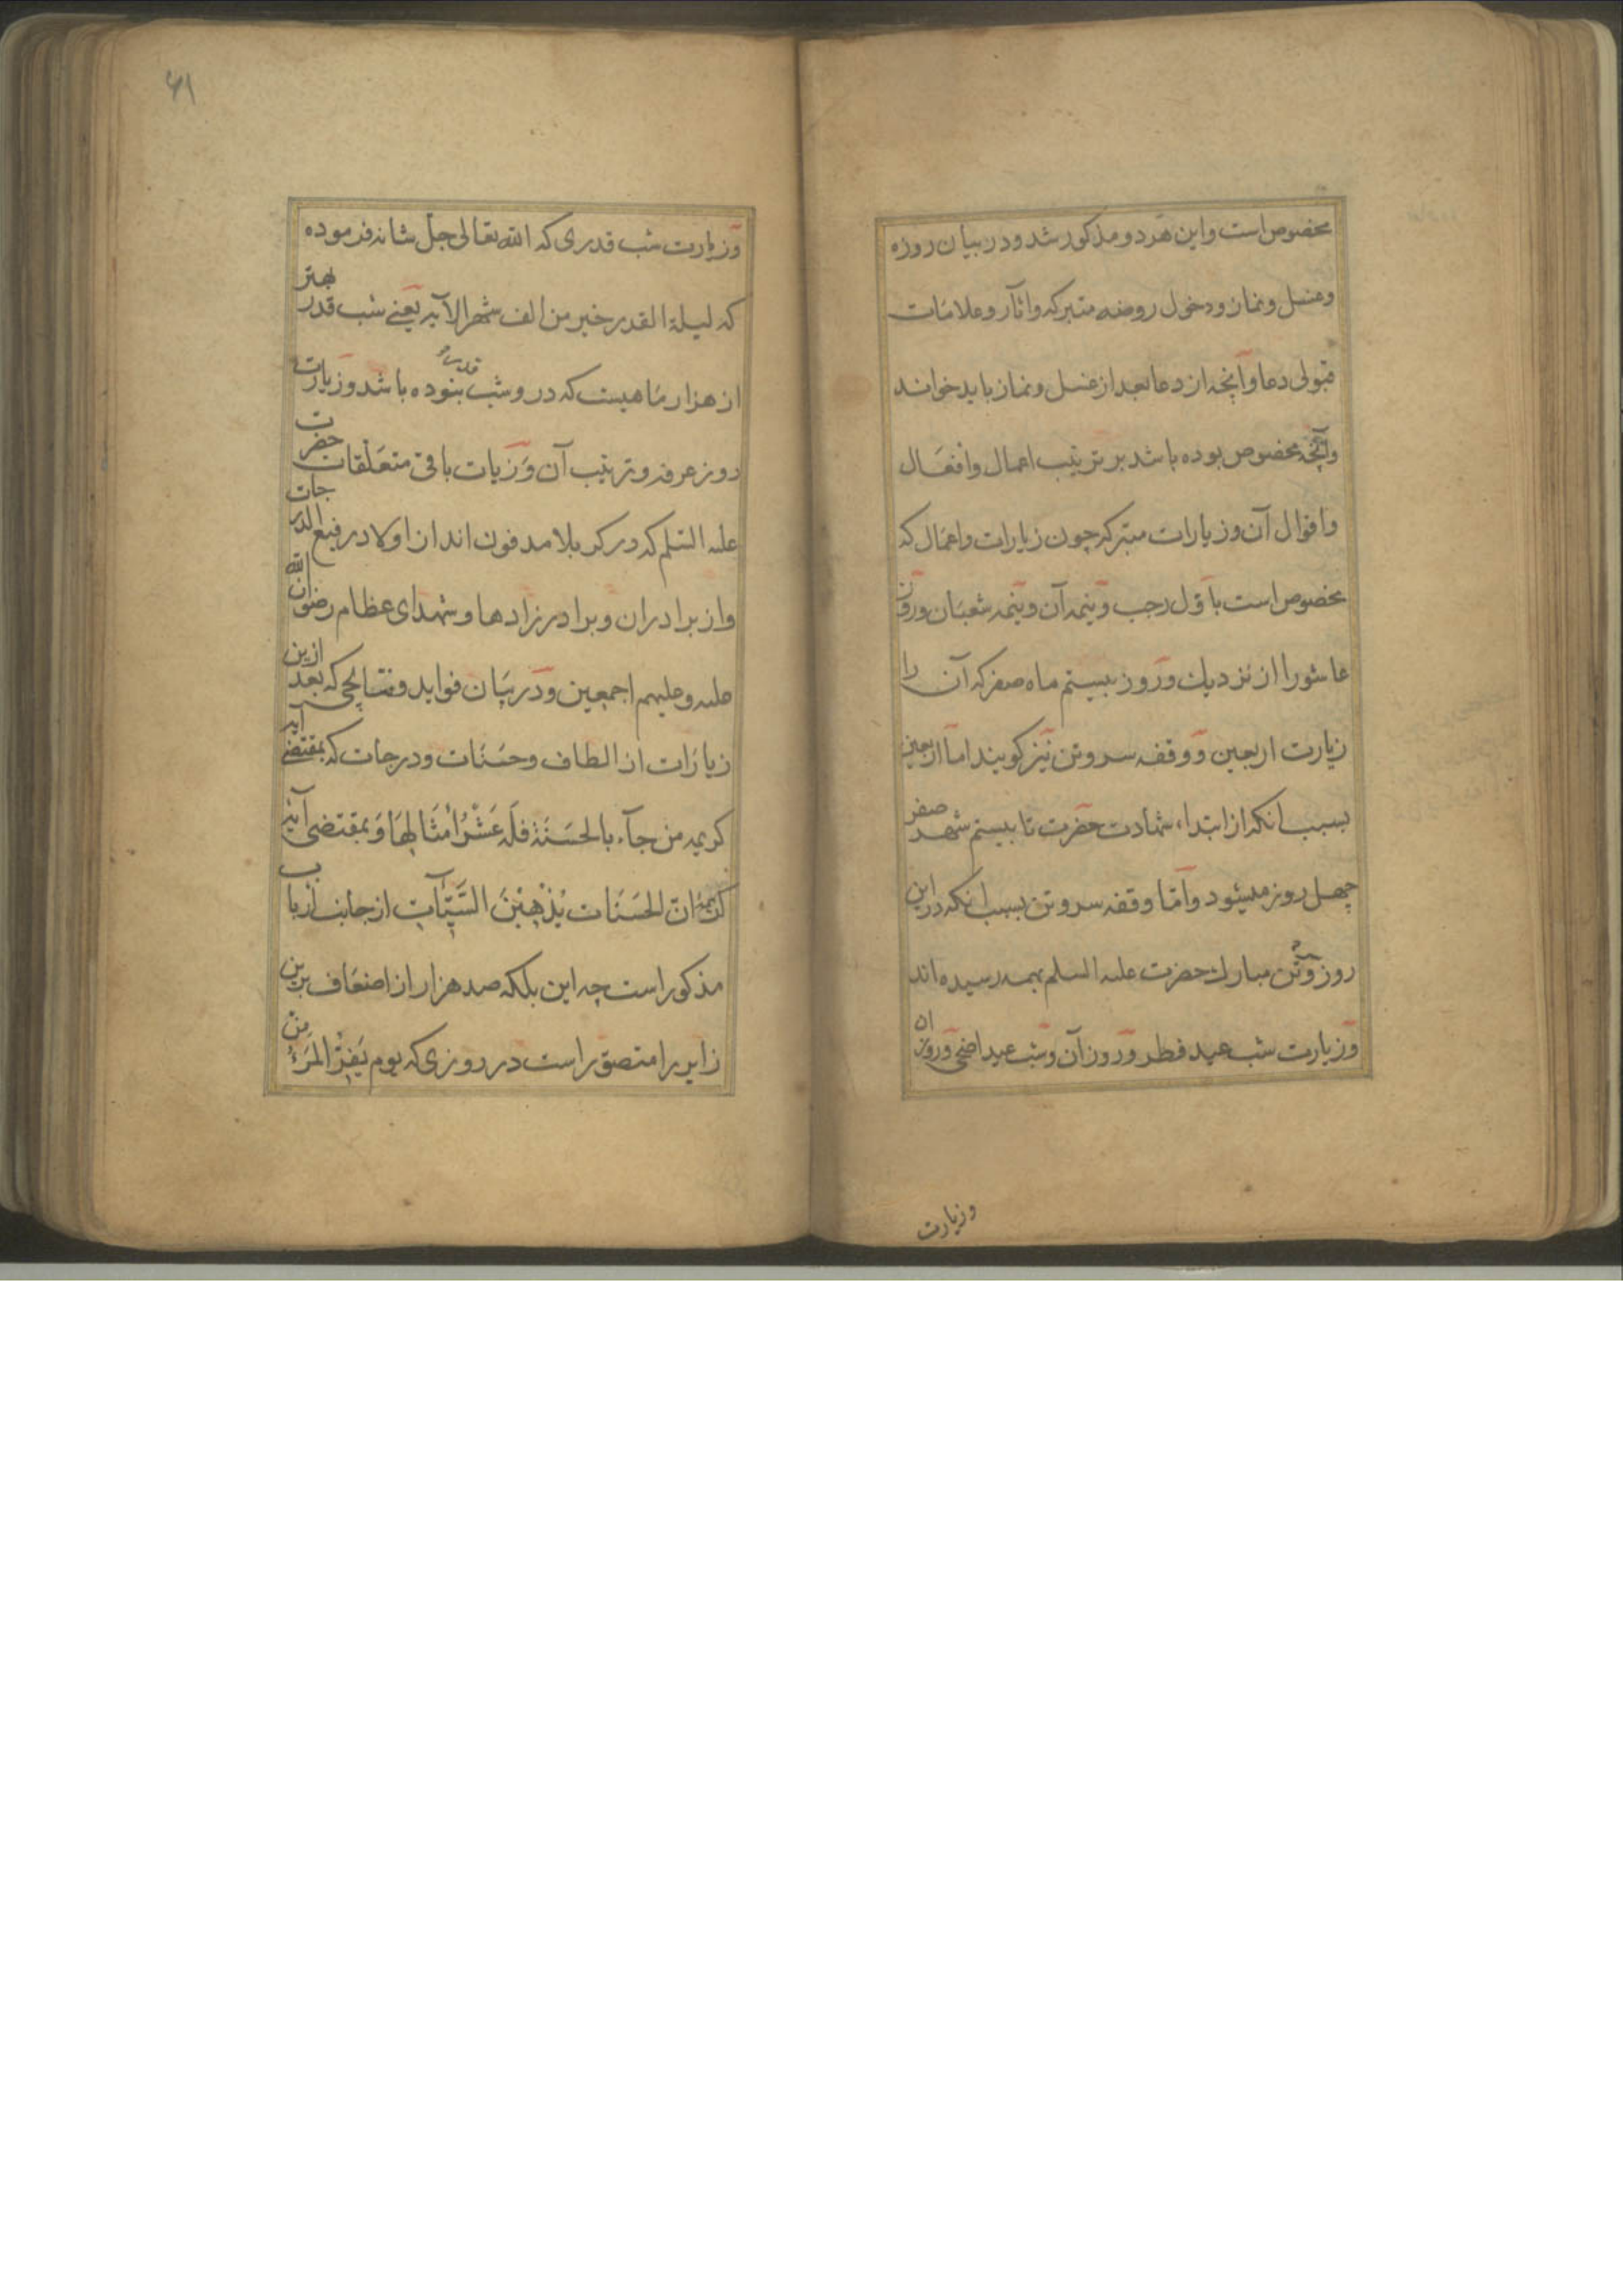 مخصوص است و این هر دو مذکور شد و در بیان روزه
و غسل و نماز و دخول روضه متبرکه و آثار و علامات
قبولی دعا و آنچه از دعا بعد از غسل و نماز باید خواند
و آنچه مخصوص بوده باشد بر ترتیب اعمال و افعال
و اقوال آن و زیارات متبرکه چون زیارات و اعمال که
مخصوص است باول رجب و نیمه آن و نیمه شعبان و روز
عاشورا از نزدیک و روز بیستم ماه صفر که آن را
زیارت اربعین و وقفه سر و تن نیز کویند اما اربعین
بسبب انکه از ابتداء شهادت حضرت تا بیستم شهر صفر
چهل روز میشود و اما وقفه سر و تن بسبب انکه در این
روز سر و تن مبارک حضرت علیه السلم بهمرسیده اند
و زیارت شب عید فطر و روز آن و شب عید اضحی و روز ان
وزیارت
۶۱
و زیارت شب قدری که الله تعالی جل شانه فرموده
که لیلة القدر خیر من الف شهر الآیه یعنے شب قدر بهتر
از هزار ماهیست که در و شب قدر نبوده باشد و زیارت
روز عرفه و ترتیب آن و زیات باقی متعلقات حضرت
علیه السلم که در کربلا مدفون اند از اولاد رفیع الدرجات
و از برادران و برادرزادها و شهدای عظام رضوان الله
علیه و علیهم اجمعین و در بیان فواید و نتایجی که بعد ازین
زیارات از الطاف و حسنات و درجات که بمقتضے آیه
کریمه من جآء بالحَسَنَةِ فلَه عَشْرُ امْثَالِهَا وَ بمقتضی آیه
کریمهٔ انّ الحَسَنَات یُذْهِبْنَ السَّیّآتِ از جانب ارباب
مذکور است چه این بلکه صد هزار از اضعاف برین
زایر را متصوّر است در روزی که یوم یَفِرُّ المَرْءُ مِن